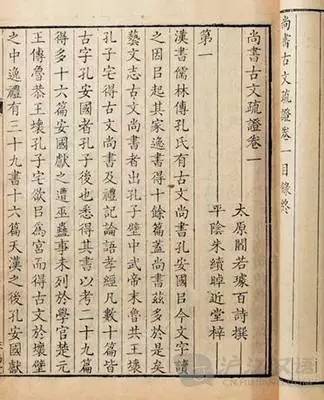 尚書古文疏證卷一目錄終
尚書古文疏證卷一
太原閻若璩百詩撰
平陰朱續晫近堂梓
第一
漢書儒林傳孔氏有古文尚書孔安國㠯今文字讀
之因㠯起其家逸書得十餘篇蓋尚書茲多於是矣
藝文志古文尚書者出孔子壁中武帝末魯共王壞
孔子宅得古文尚書及禮記論語孝經凡數十篇皆
古字孔安國者孔子後也悉得其書以考二十九篇
得多十六篇安國獻之遭巫蠱事未列於學官楚元
王傳魯恭王壞孔子宅欲㠯為宮而得古文於壞壁
之中逸禮有三十九書十六篇天漢之後孔安國獻